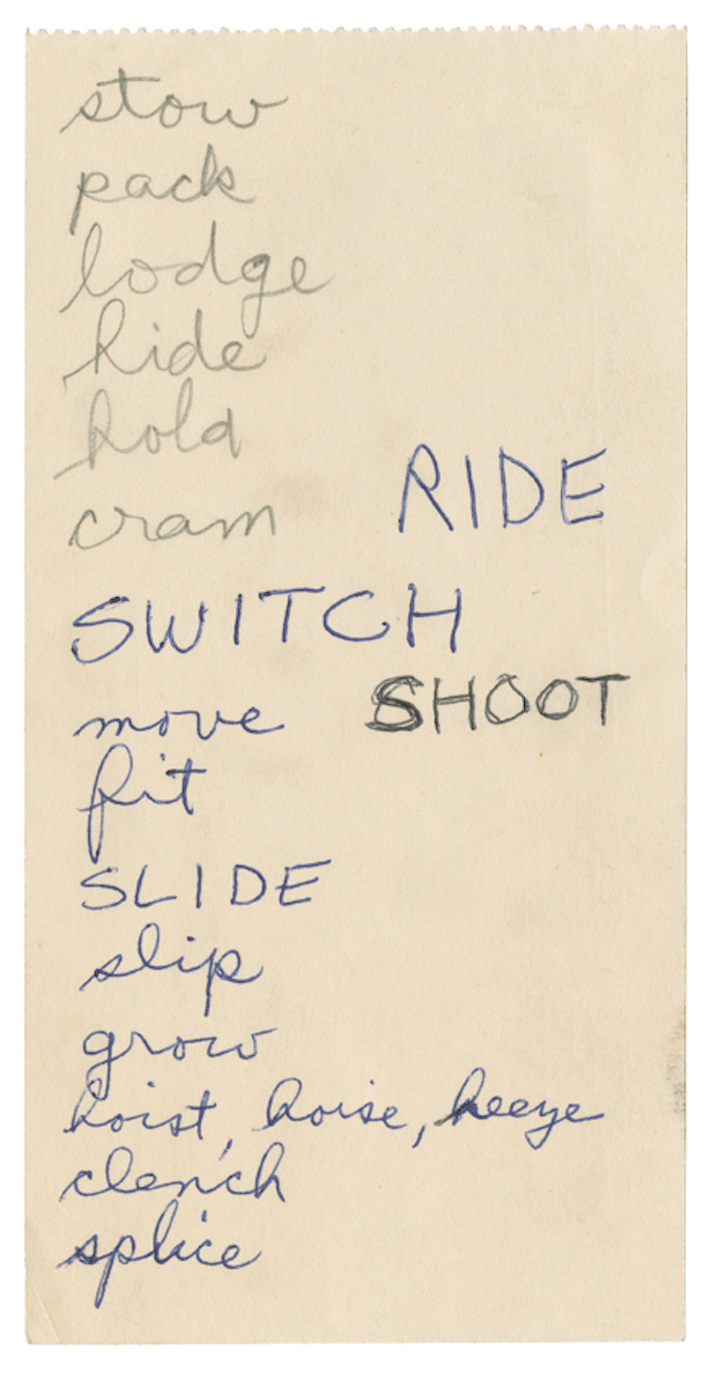 stow
pack
lodge
hide
hold
cram
RIDE
SWITCH
move
SHOOT
fit
SLIDE
slip
grow
hoist, hoise, heeze
clench
splice